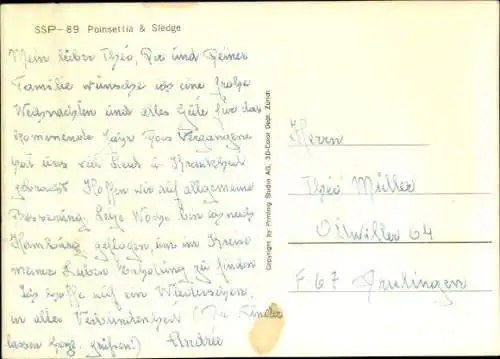 SSP-89 Poinsettia & Sledge
Mein lieber Théo, Dir und Deiner
Familie wünsche ich eine frohe
Weihnachten und alles Gute für das
kommende Jahr Das Vergangene
hat uns viel Leid u Krankheit
gebracht Hoffen wir auf allgemeine
Besserung Letzte Woche bin ich nach
Hamburg geflogen, um im Kreise
meiner Lieben Erholung zu finden
Ich hoffe auf ein Wiedersehen,
in alter Verbundenheit (Die Kinder
lassen grüßen!) Andrée
Copyright by: Printing Studio AG, 3D-Color Dept. Zürich
Herrn
Théo Müller
64
F 67